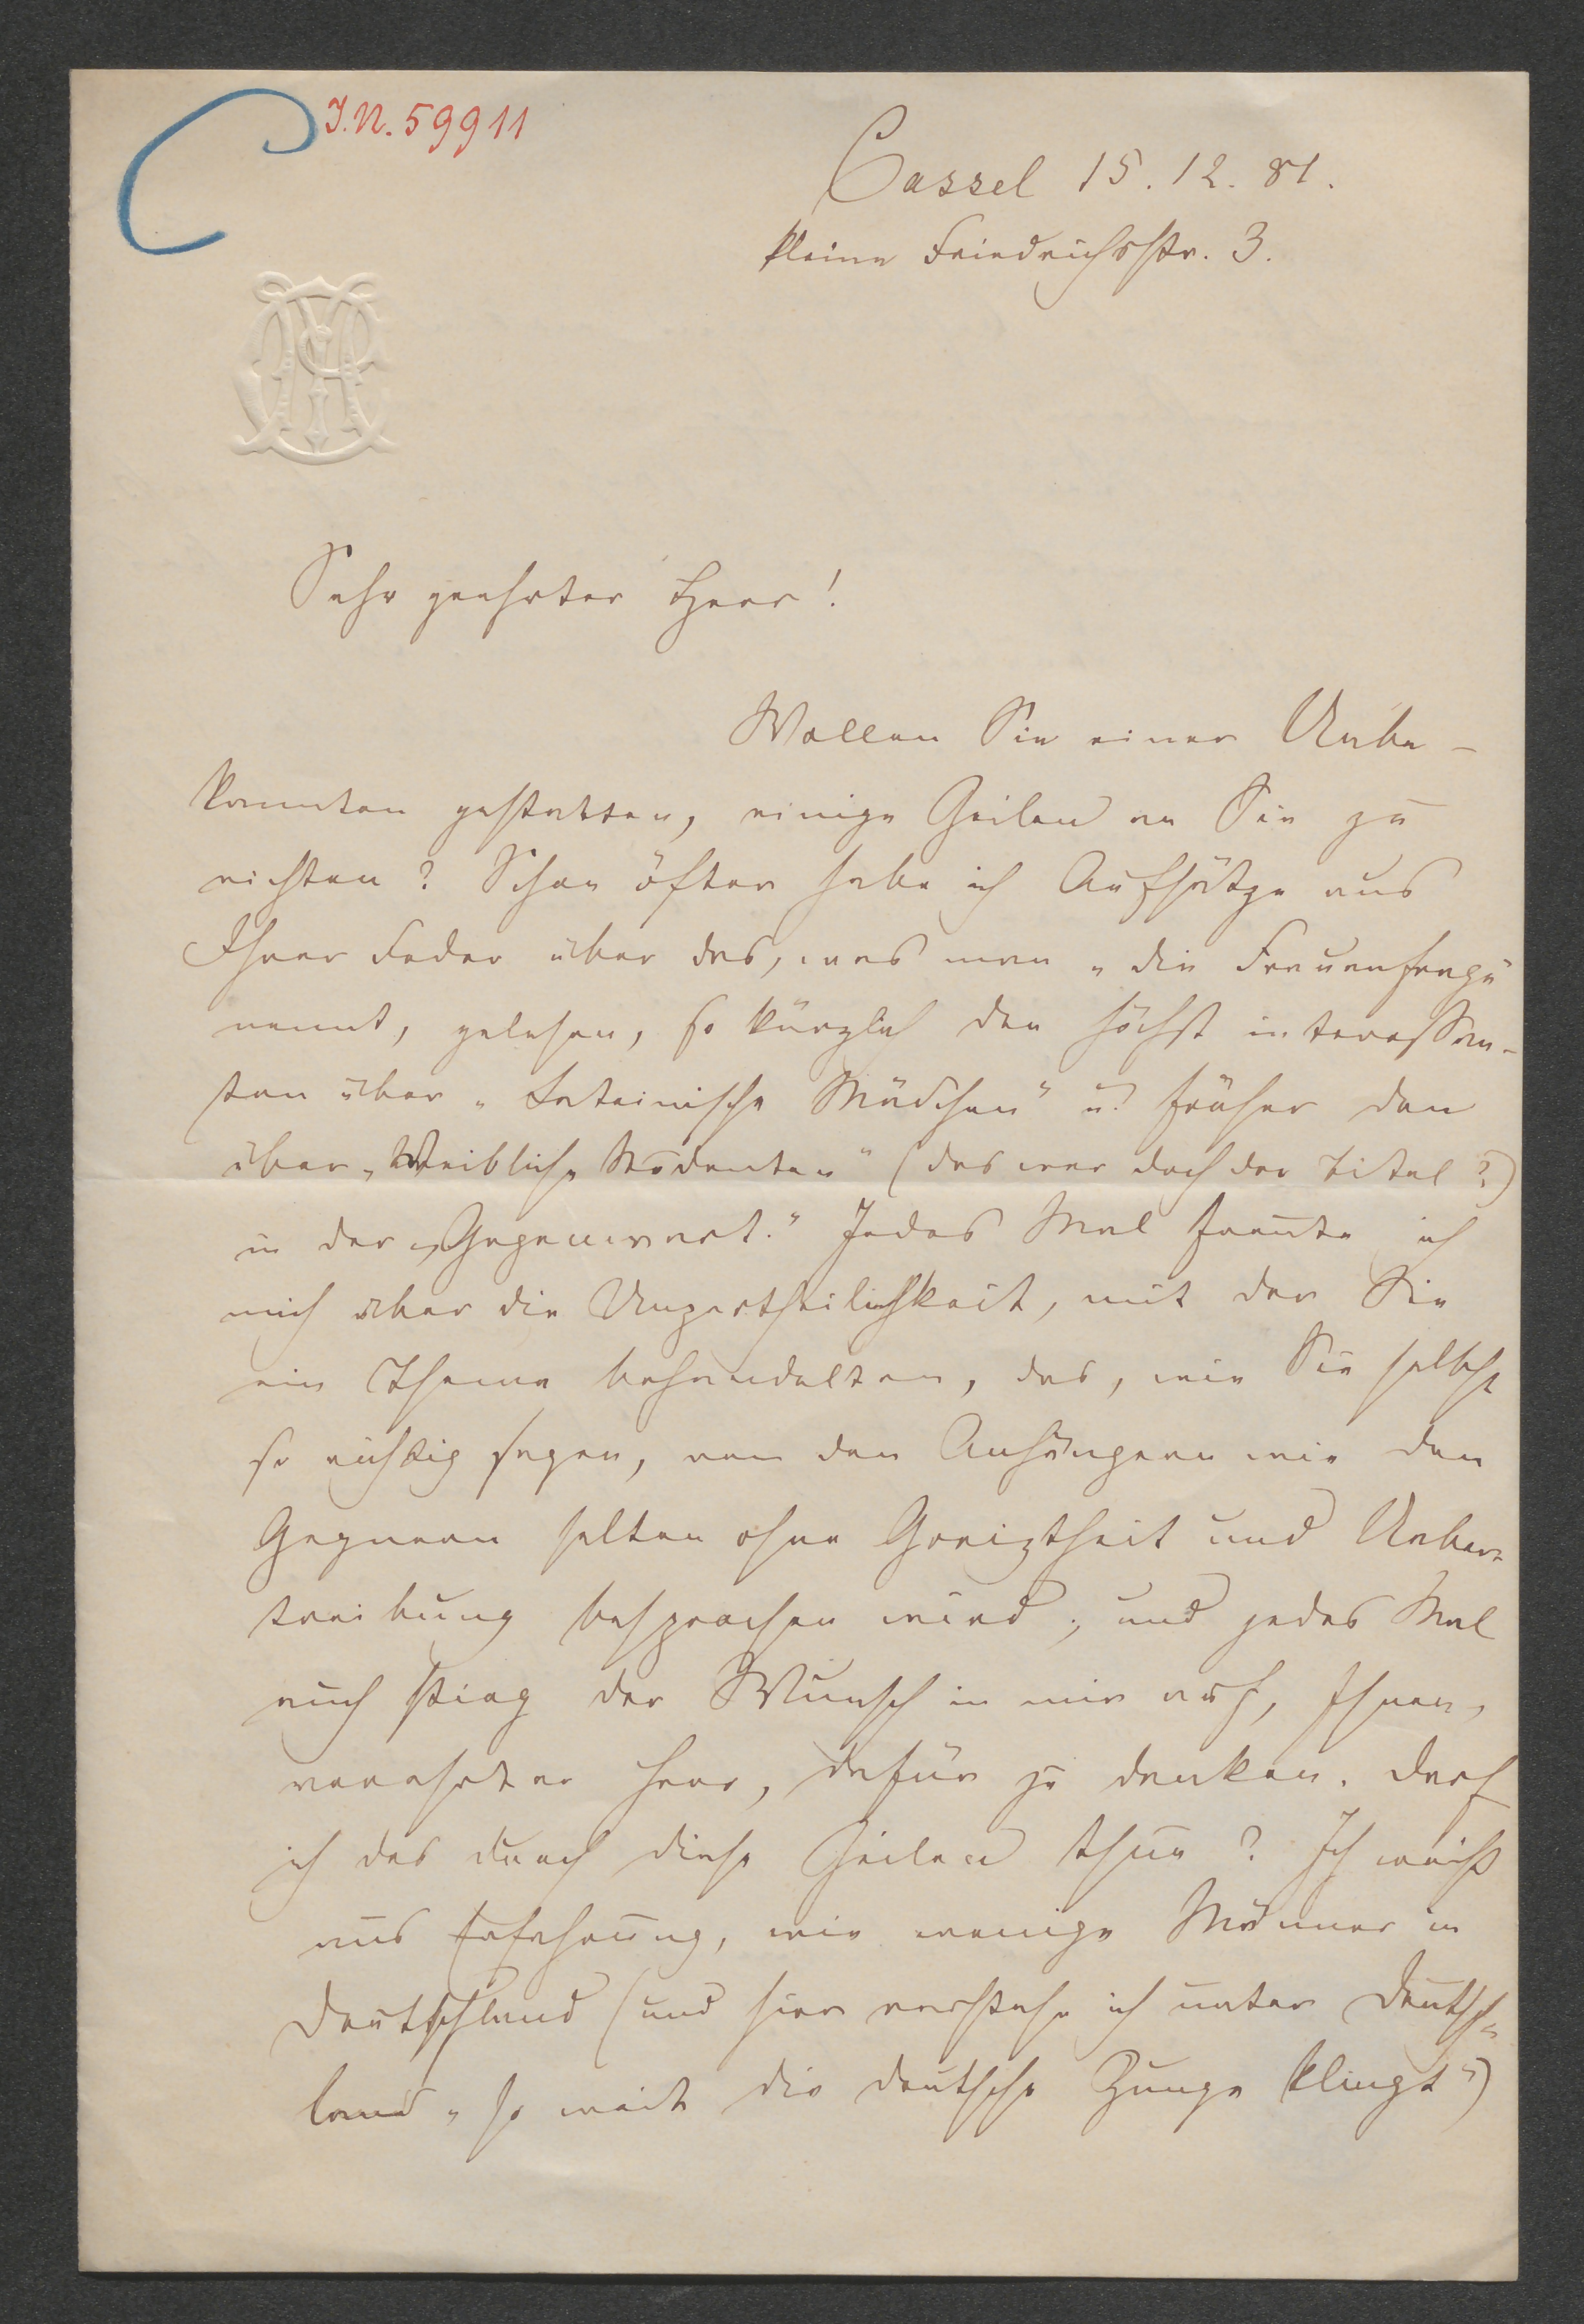 I.N. 59911
Cassel 15. 12. 81.
kleine Friedrichsstr. 3.
Sehr geehrter Herr!
Wollen Sie einer Unbe-
kannten gestatten, einige Zeilen an Sie zu
richten? Schon öfter habe ich Aufsätze aus
Ihrer Feder über das, was man „die Frauenfrage"
nennt, gelesen, so kürzlich den höchst interessan-
ten über „Lateinische Mädchen" u. früher den
über „Weibliche Studenten" (das war doch der Titel?)
in der „Gegenwart." Jedes Mal freute ich
mich über die Unpartheilichkeit, mit der Sie
ein Thema behandelten, das, wie Sie selbst
so richtig sagen, von den Anhängern wie den
Gegnern selten ohne Gereiztheit und Ueber-
treibung besprochen wird; und jedes Mal
auch stieg der Wunsch in mir auf, Ihnen,
verehrter Herr, dafür zu danken. Darf
ich das durch diese Zeilen thun? Ich weiß
aus Erfahrung, wie wenige Männer in
Deutschland (und hier verstehe ich unter Deutsch-
land „so weit die deutsche Zunge klingt")